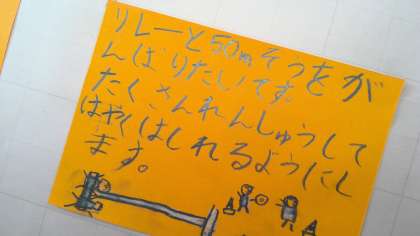 リレーと50mそうをが
んばりたいです。
たくさんれんしゅうして
はやくはしれるようにし
ます。